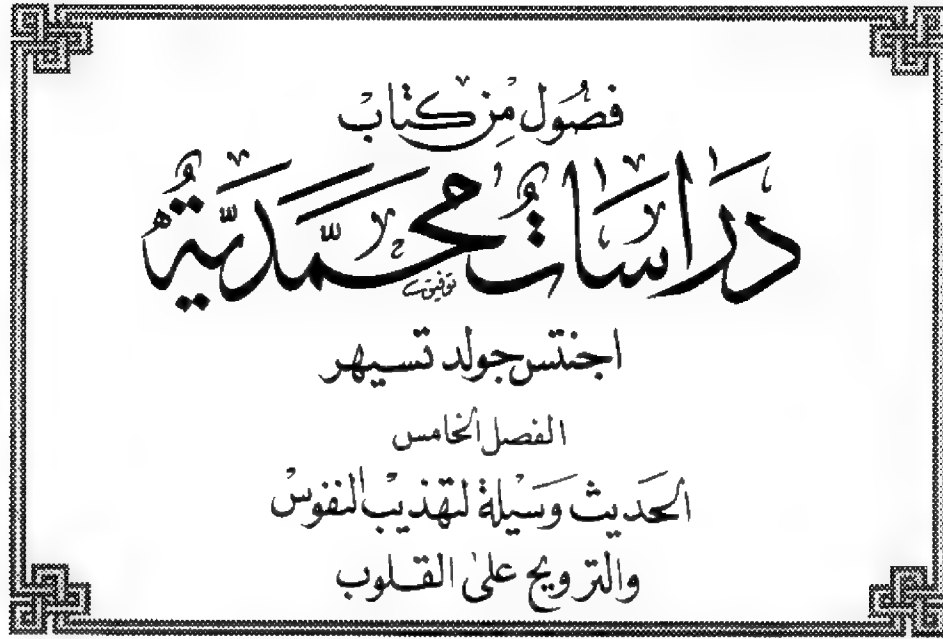 فصُول مِن كتابْ
دَراسَاتٌ محمَّديَّةٌ
توفيق
اجنتس جولد تسيهر
الفصل الخامس
الحَديث وَسيْلة لتهذيب النفوسْ
والترويح على القلوب